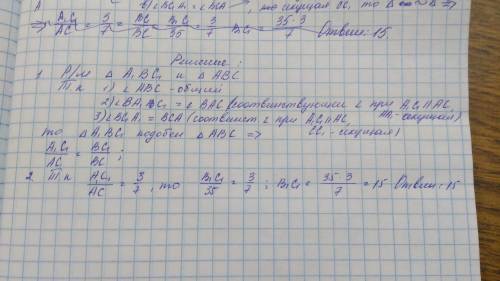 A
б) ∠BC₁A₁ = ∠BCA , т.к. секущая CC₁ то △ ∞ △ =>
=> A₁C₁/AC = 3/7 = BC₁/BC = B₁C₁/35 = 3/7 B₁C₁ = 35·3/7 Ответ: 15
Решение:
1. Р/м △ A₁BC₁ и △ ABC
Т.к 1) ∠ABC - общий
2) ∠BA₁C₁ = ∠BAC (соответствующие ∠ при A₁C₁ ∥ AC, AA₁-секущая)
3) ∠BC₁A₁ = BCA (соответст ∠ при A₁C₁ ∥ AC, CC₁ - секущая)
то △ A₁BC₁ подобен △ ABC =>
A₁C₁/AC = BC₁/BC ;
2. Т.к A₁C₁/AC = 3/7 , то B₁C₁/35 = 3/7 ; B₁C₁ = 35·3/7 = 15 Ответ: 15